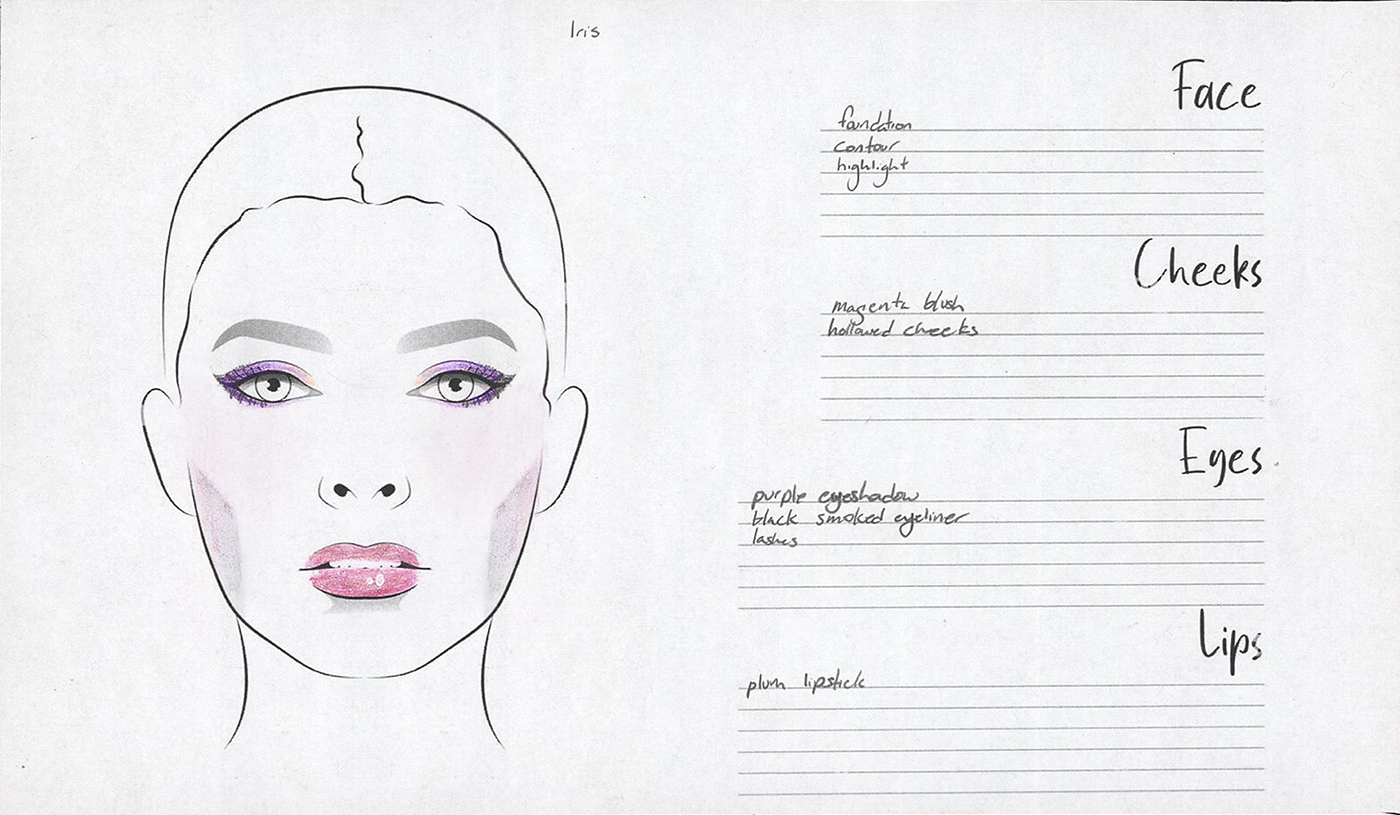 Iris
Face
foundation
contour
highlight
Cheeks
magenta blush
hollowed cheeks
Eyes
purple eyeshadow
black smoked eyeliner
lashes
Lips
plum lipstick